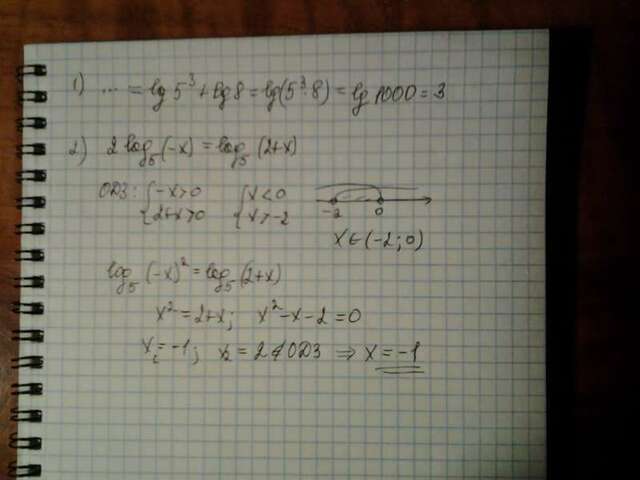 1) ... = lg 5³ + lg 8 = lg(5³·8) = lg 1000 = 3
2) 2 log₅(-x) = log₅(2+x)
ОДЗ: { -x>0 { x<0
{ 2+x>0 { x>-2
-2 0
x∈(-2;0)
log₅(-x)² = log₅(2+x)
x² = 2+x; x²-x-2=0
x₁=-1; x₂=2∉ОДЗ ⇒ x=-1